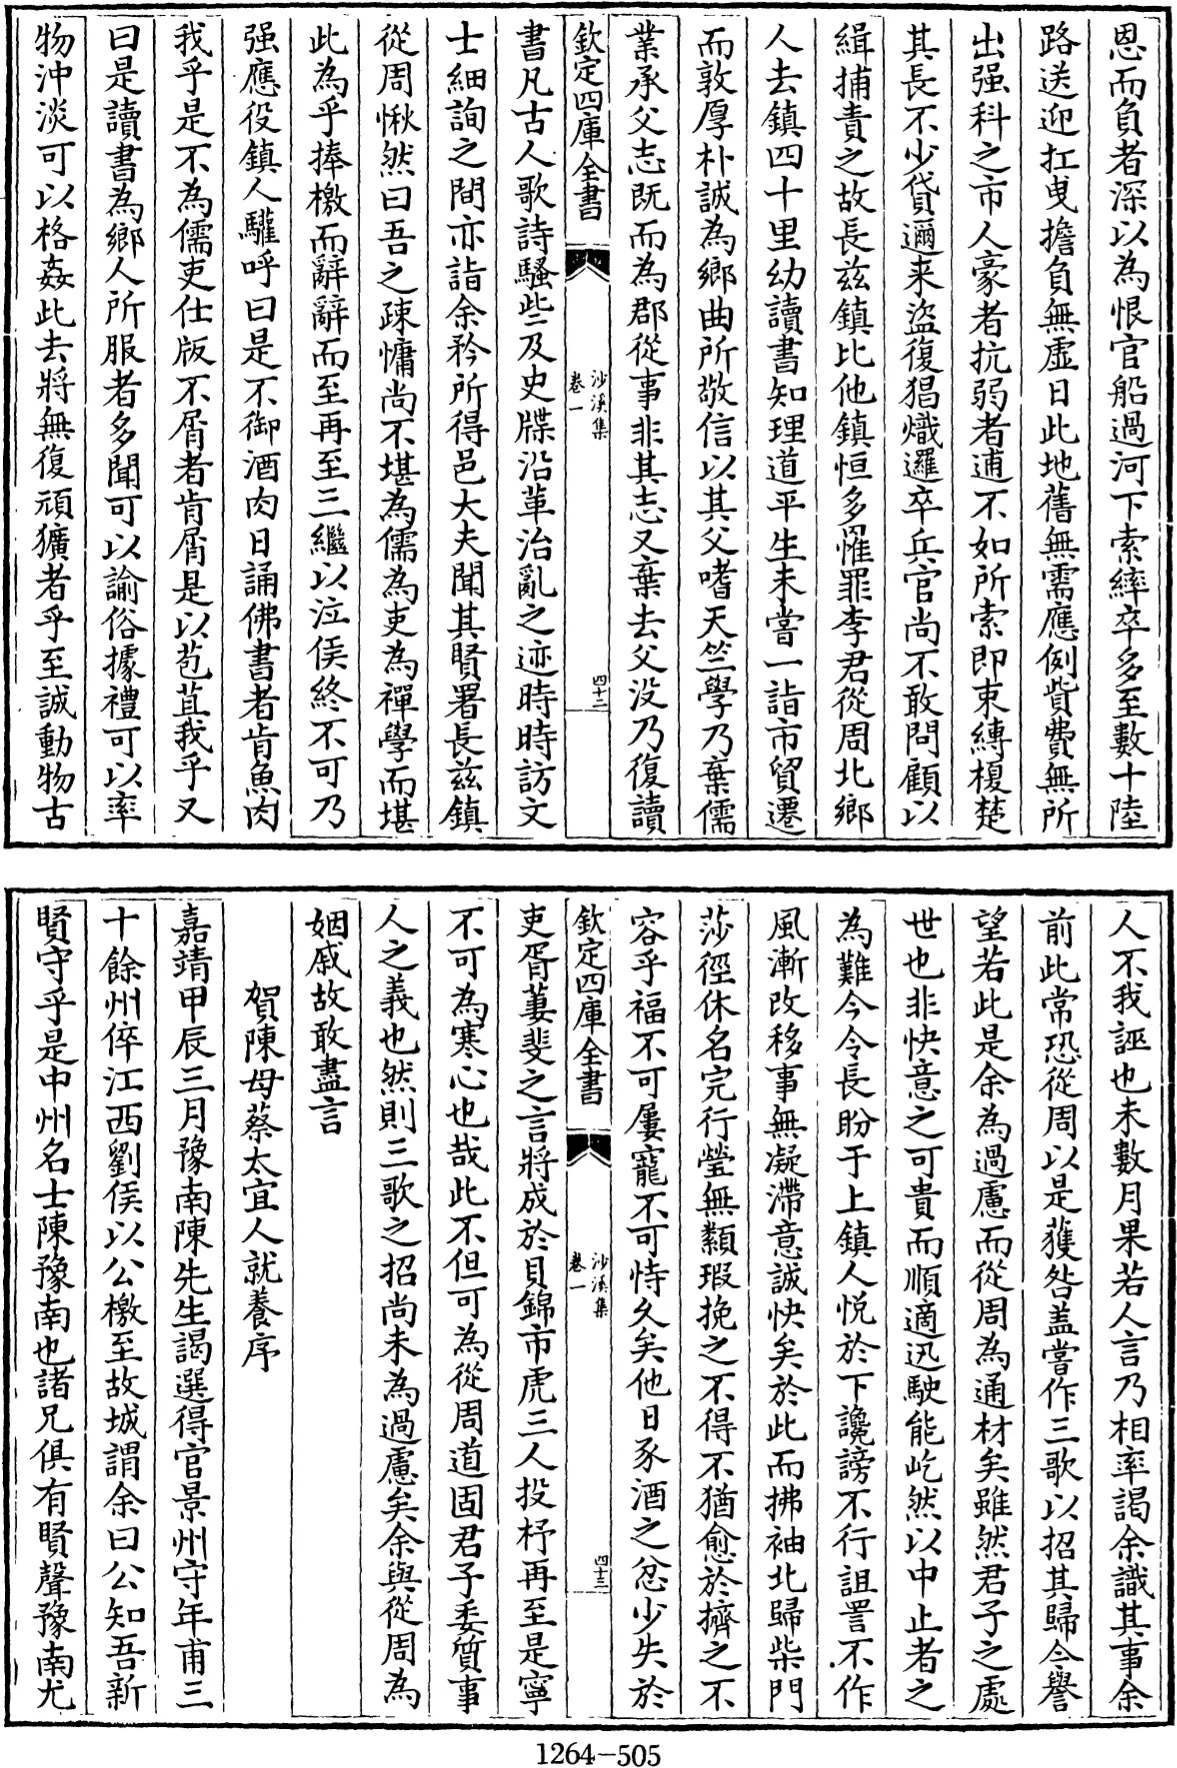 恩而負者深以為恨官船過河下索縴卒多至數十陸
路送迎扛曳擔負無虛日此地舊無需應例貲費無所
出强科之市人豪者抗弱者逋不如所索即束縛榎楚
其長不少貸邇来盜復猖熾邏卒兵官尚不敢問顧以
緝捕責之故長兹鎮比他鎮恒多罹罪李君從周北鄉
人去鎮四十里幼讀書知理道平生未嘗一詣市貿遷
而敦厚朴誠為鄉曲所敬信以其父嗜天竺學乃棄儒
業承父志既而為郡從事非其志又棄去父没乃復讀
欽定四庫全書
沙溪集
卷一
四十二
書凡古人歌詩騷些及史牒沿革治亂之迹時時訪文
士細詢之間亦詣余矜所得邑大夫聞其賢署長兹鎮
從周愀然曰吾之疎慵尚不堪為儒為吏為禪學而堪
此為乎捧檄而辭辭而至再至三繼以泣侯終不可乃
强應役鎮人驩呼曰是不御酒肉日誦佛書者肯魚肉
我乎是不為儒吏仕版不屑者肯屑是以苞苴我乎又
曰是讀書為鄉人所服者多聞可以諭俗據禮可以率
物沖淡可以格姦此去將無復頑獷者乎至誠動物古
人不我誣也未數月果若人言乃相率謁余識其事余
前此常恐從周以是獲咎盖嘗作三歌以招其歸今譽
望若此是余為過慮而從周為通材矣雖然君子之處
世也非快意之可貴而順適迅駛能屹然以中止者之
為難今令長盼于上鎮人悦於下讒謗不行詛詈不作
風漸改移事無凝滯意誠快矣於此而拂袖北歸柴門
莎徑休名完行瑩無纇瑕挽之不得不猶愈於擠之不
容乎福不可屢寵不可恃久矣他日豕酒之忿少失於
欽定四庫全書
沙溪集
卷一
四十三
吏胥萋斐之言將成於貝錦市虎三人投杼再至是寧
不可為寒心也哉此不但可為從周道固君子委質事
人之義也然則三歌之招尚未為過慮矣余與從周為
姻戚故敢盡言
賀陳母蔡太宜人就養序
嘉靖甲辰三月豫南陳先生謁選得官景州守年甫三
十餘州倅江西劉侯以公檄至故城謂余曰公知吾新
賢守乎是中州名士陳豫南也諸兄俱有賢聲豫南尤
1264-505